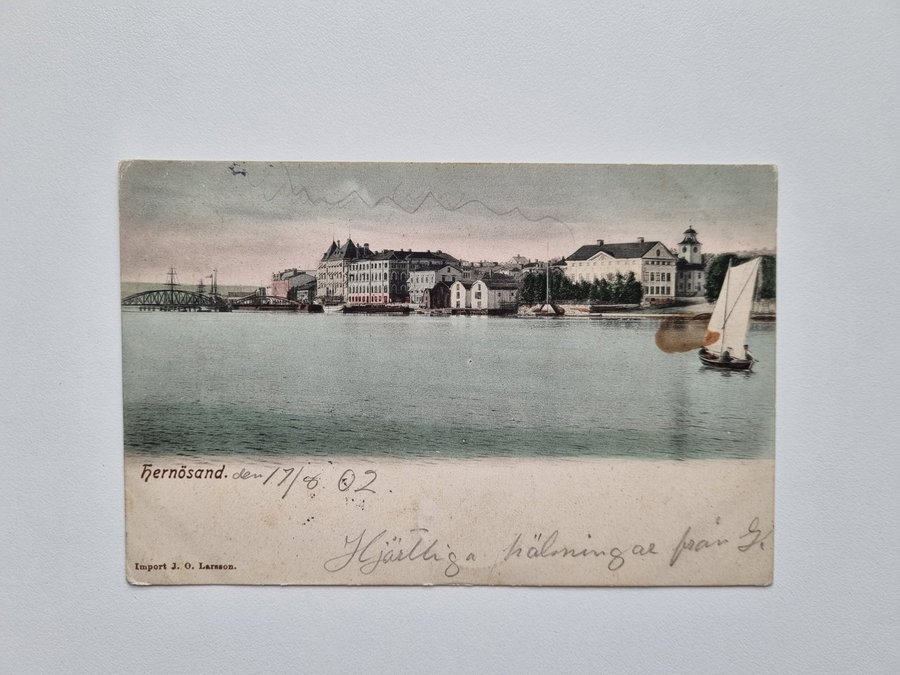 Hernösand. den 17/8. 02.
Hjärtliga hälsningar från G.
Import J. O. Larsson.